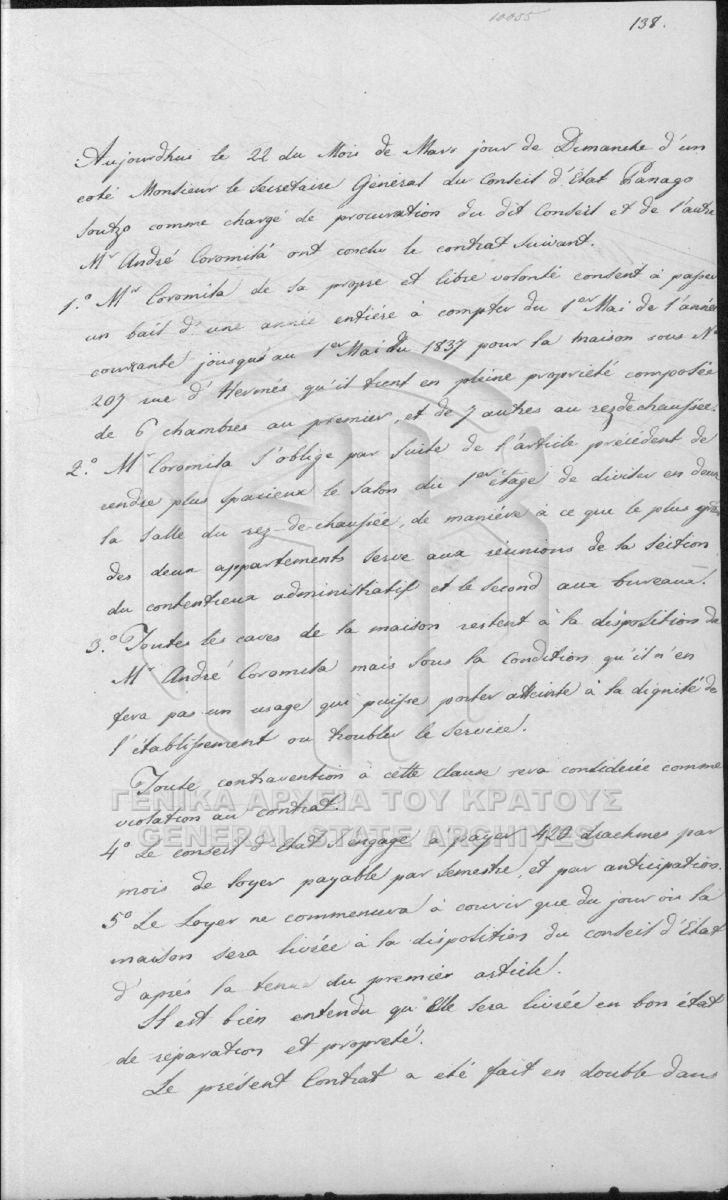 10055
138.
Aujourdhui le 22 du Mois de Mars jour de Dimanche d'un
coté Monsieur le Secretaire Général du Conseil d'État Panago
Soutzo comme chargé de procuration du dit Conseil et de l'autre
Mr André Coromila ont conclu le contrat suivant.
1.o Mr Coromila de sa propre et libre volonté consent à passer
un bail d'une année entiére à compter du 1er Mai de l'année
courante jousqu'au 1er Mai du 1837 pour la maison sous No
207 rue d'Hermés qu'il tient en pleine propriété composée
de 6 chambres au premier, et de 7 autres au rez de chaussée.
2.o Mr Coromila s'oblige par suite de l'article précédent de
rendre plus spacieux le salon du 1er étage de diviser en deux
la salle du rez-de-chaussée, de maniére à ce que le plus grand
des deux appartements serve aux réunions de la séction
du contentieux administratif et le second aux bureaux.
3.o Toutes les caves de la maison restent à la disposition de
Mr André Coromila mais sous la condition qu'il n'en
fera pas un usage qui puisse porter atteinte à la dignité de
l'établissement ou troubler le service.
Toute contravention à cette clause sera considerée comme
violation au contrat.
ΓΕΝΙΚΑ ΑΡΧΕΙΑ ΤΟΥ ΚΡΑΤΟΥΣ
GENERAL STATE ARCHIVES
4o Le conseil d'Etat s'engage a payer 420 drachmes par
mois de loyer payable par semestre, et par anticipation.
5o Le Loyer ne commencera à courir que du jour où la
maison sera livrée à la disposition du conseil d'Etat
d'aprés la teneur du premier article.
Il est bien entendu qu'Elle sera livrée en bon état
de réparation et propreté.
Le présent Contrat a eté fait en double dans